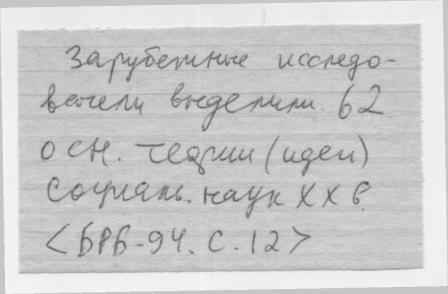 Зарубежные исследо-
ватели выделили 62
осн. теории (идеи)
социальн. наук XX в.
<БРБ-94. С. 12>